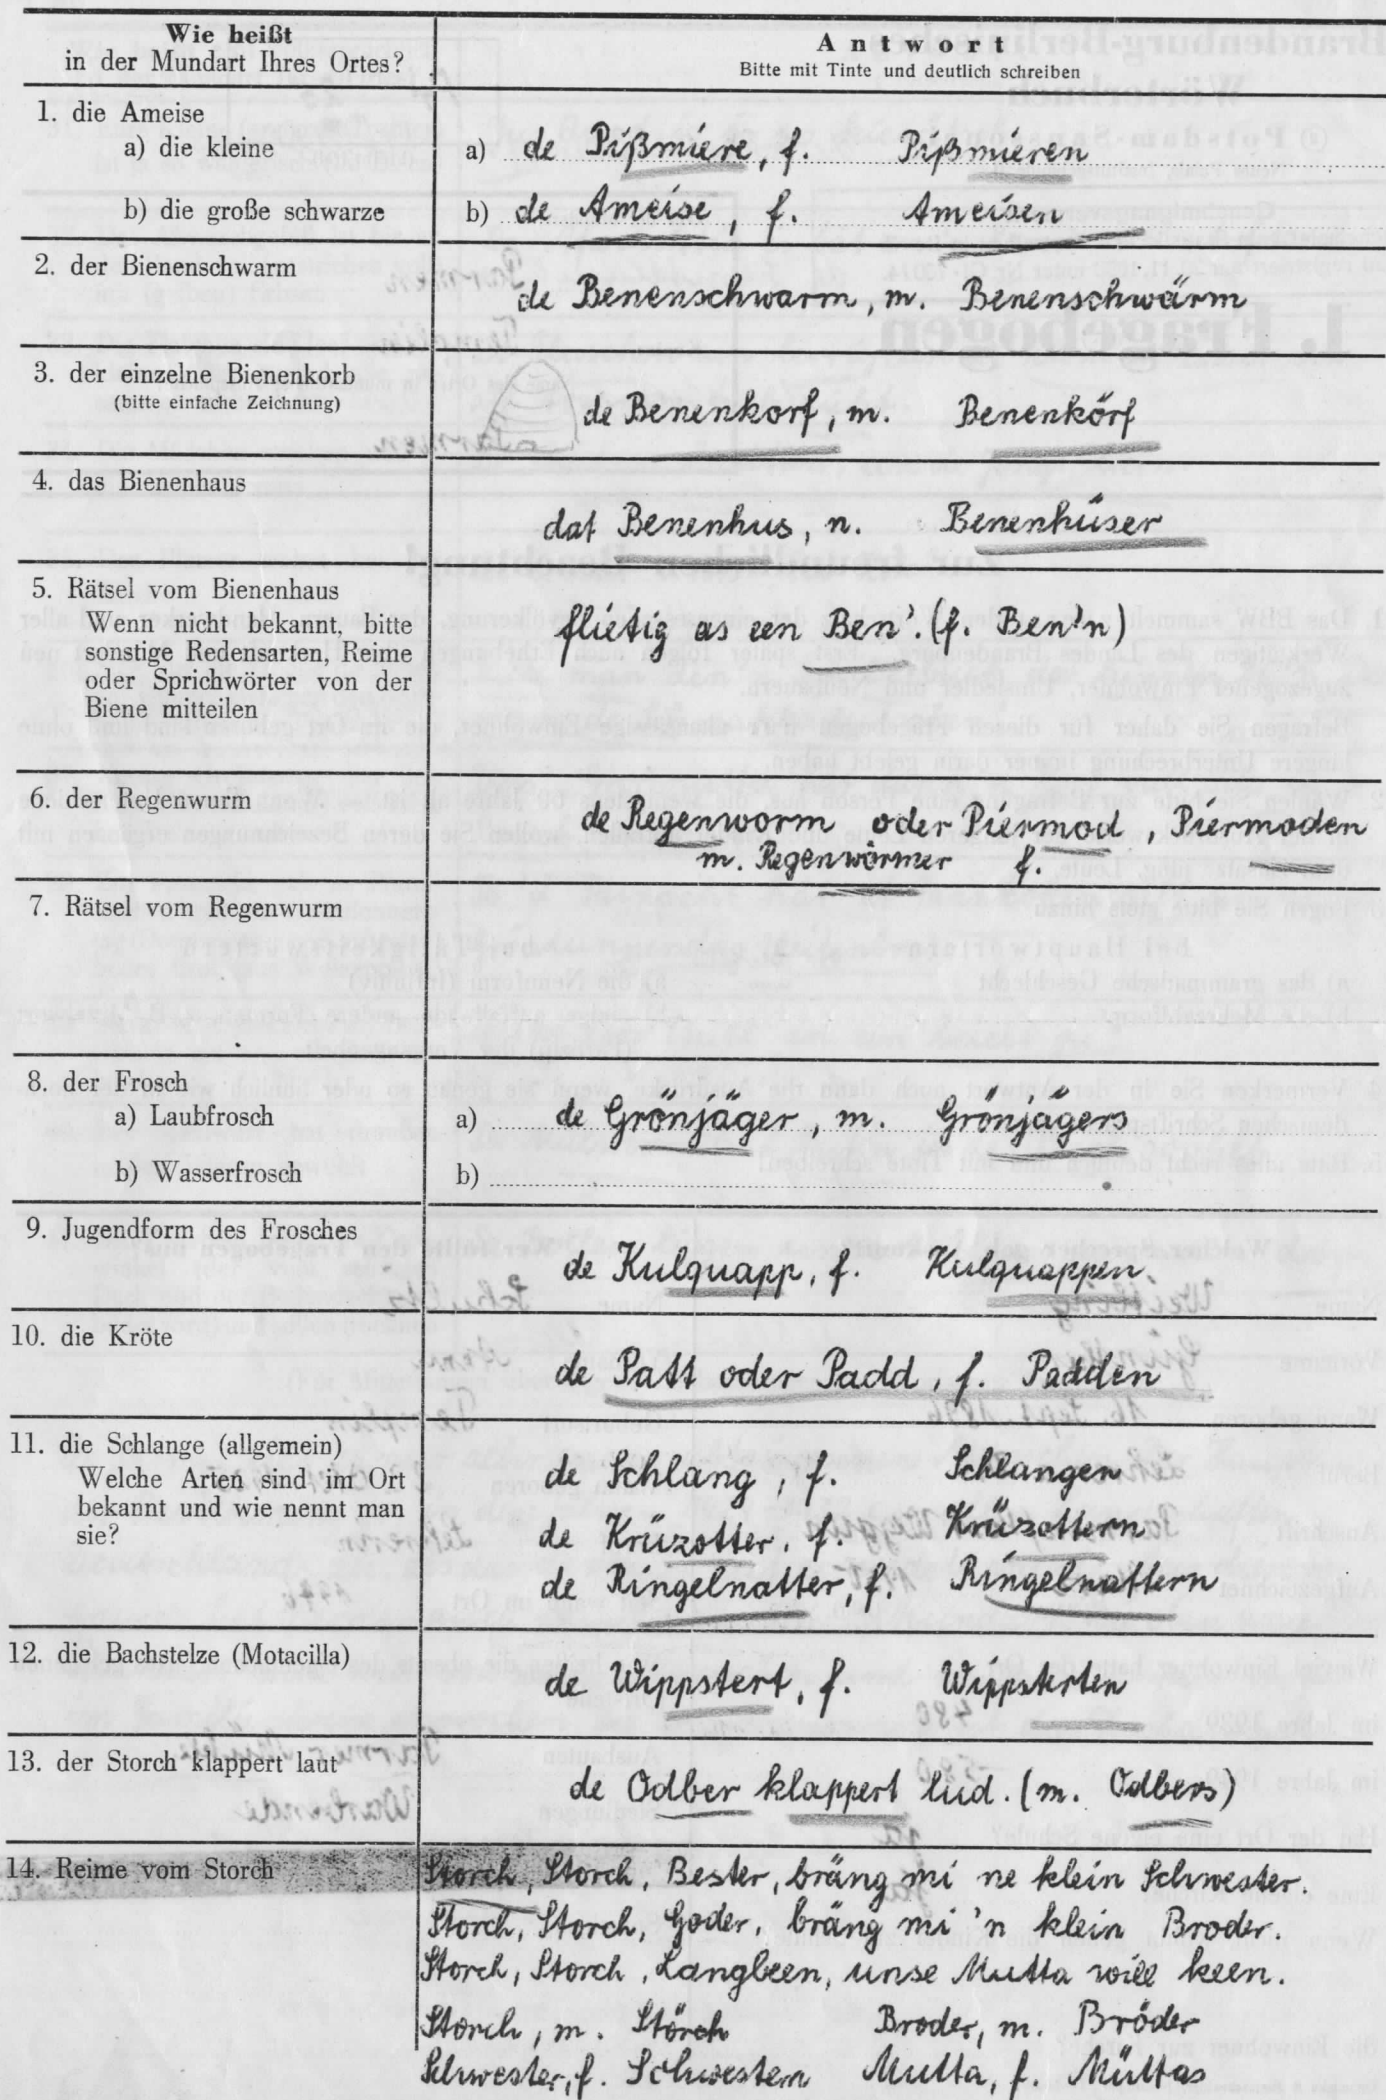 Wie heißt
in der Mundart Ihres Ortes?
Antwort
Bitte mit Tinte und deutlich schreiben
1. die Ameise
a) die kleine
a) de Pißmiere, f. Pißmieren
b) die große schwarze
b) de Ameise, f. Ameisen
2. der Bienenschwarm
de Benenschwarm, m. Benenschwärm
3. der einzelne Bienenkorb
(bitte einfache Zeichnung)
de Benenkorf, m. Benenkörf
4. das Bienenhaus
dat Benenhus, n. Benenhüser
5. Rätsel vom Bienenhaus
Wenn nicht bekannt, bitte
sonstige Redensarten, Reime
oder Sprichwörter von der
Biene mitteilen
flietig as een Ben'. (f. Ben'n)
6. der Regenwurm
de Regenworm oder Piermod, Piermoden
m. Regenwörmer f.
7. Rätsel vom Regenwurm
8. der Frosch
a) Laubfrosch
a) de Grönjäger, m. Grönjägers
b) Wasserfrosch
b)
9. Jugendform des Frosches
de Kulquapp, f. Kulquappen
10. die Kröte
de Patt oder Padd, f. Padden
11. die Schlange (allgemein)
Welche Arten sind im Ort
bekannt und wie nennt man
sie?
de Schlang, f. Schlangen
de Krüzotter, f. Krüzottern
de Ringelnatter, f. Ringelnattern
12. die Bachstelze (Motacilla)
de Wippstert, f. Wippsterten
13. der Storch klappert laut
de Odber klappert lud. (m. Odbers)
14. Reime vom Storch
Storch, Storch, Bester, bräng mi ne klein Schwester.
Storch, Storch, Goder, bräng mi 'n klein Broder.
Storch, Storch, Langbeen, unse Mutta will keen.
Storch, m. Störch Broder, m. Bröder
Schwester, f. Schwestern Mutta, f. Müttas